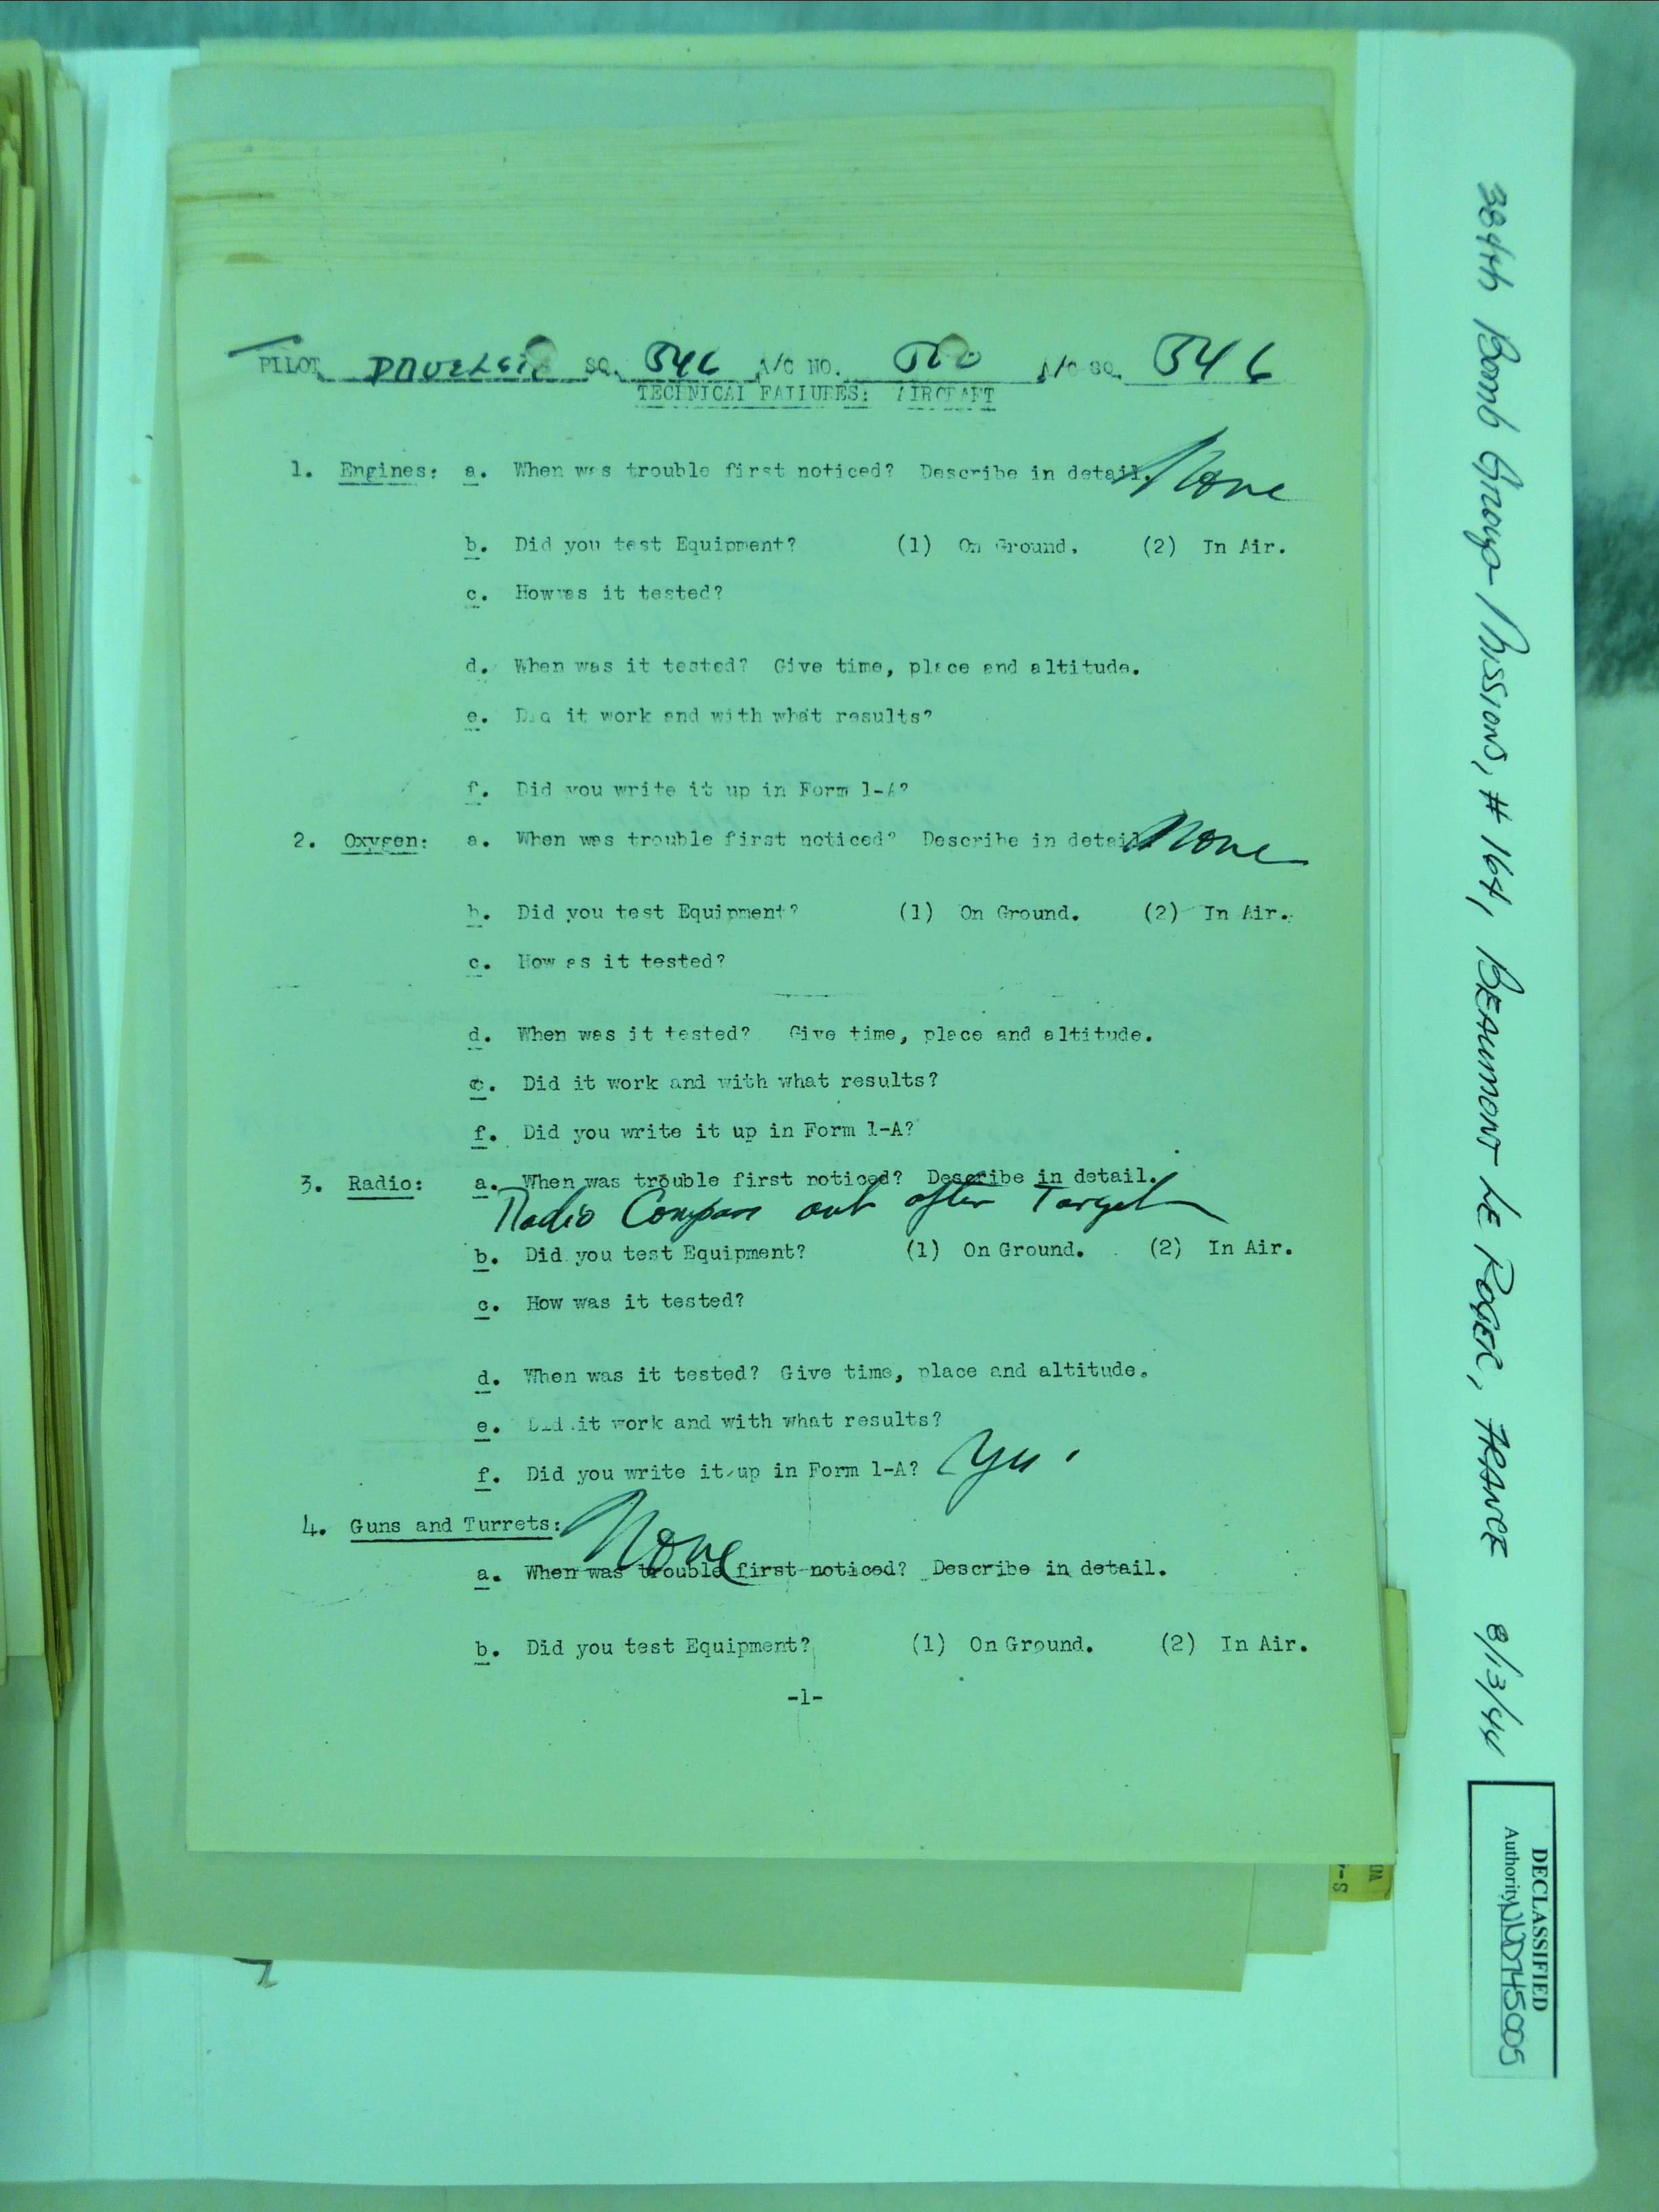 PILOT SQ. 546 A/C NO. A/C SQ. 546
TECHNICAL FAILURES: AIRCRAFT
1. Engines: a. When was trouble first noticed? Describe in detail. None
b. Did you test Equipment? (1) On Ground. (2) In Air.
c. How was it tested?
d. When was it tested? Give time, place and altitude.
e. Did it work and with what results?
f. Did you write it up in Form 1-A?
2. Oxygen: a. When was trouble first noticed? Describe in detail None
b. Did you test Equipment? (1) On Ground. (2) In Air.
c. How as it tested?
d. When was it tested? Give time, place and altitude.
e. Did it work and with what results?
f. Did you write it up in Form 1-A?
3. Radio: a. When was trouble first noticed? Describe in detail.
Radio Compass out after Target
b. Did you test Equipment? (1) On Ground. (2) In Air.
c. How was it tested?
d. When was it tested? Give time, place and altitude.
e. Did it work and with what results?
f. Did you write it up in Form 1-A? Yes.
4. Guns and Turrets: None
a. When was trouble first noticed? Describe in detail.
b. Did you test Equipment? (1) On Ground. (2) In Air.
-1-
384th Bomb Group - Missions, # 164, BEAUMONT LE ROGER, FRANCE 8/13/44
DECLASSIFIED
Authority NND745005